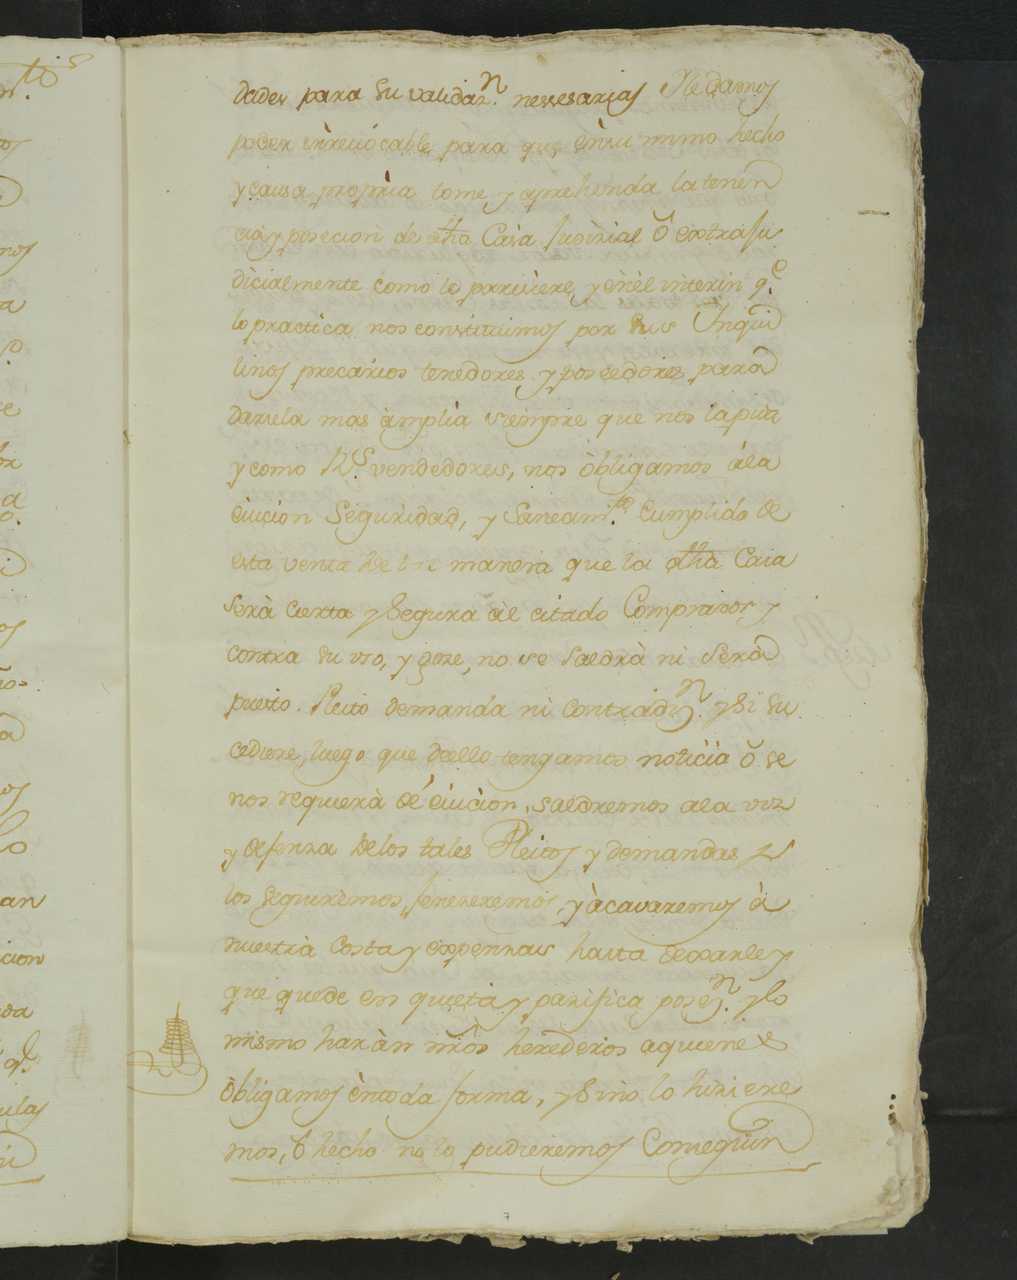 dades para su validaz.n nessesarias Y le damos
poder irrevocable para que en su mismo hecho
y causa propria tome y aprehenda la tenen
cia y posecion de dha Casa Judicial ò extraju
dicialmente como lo pareciere, y en el interin q.e
lo practica nos constituimos por sus Inqui
linos precarios tenedores y poseedores para
darsela mas àmplia siempre que nos la pida
y como R.s vendedores, nos òbligamos àla
eviccion Seguridad, y Saneam.to Cumplido de
esta venta de tal manera que la dha Casa
serà cierta y Segura àl citado Comprador, y
contra su uso, y goze, no se Saldrà ni Serà
puesto Pleito demanda ni contradiz.n y Si Su
cediere, luego que dello tengamos noticia ò se
nos requiera de evicion, saldremos ala voz
y defensa delos tales Pleitos y demandas y
los Seguiremos, feneceremos y àcavaremos à
nuestra Costa y expensas hasta dexarle y
que quede en quieta y pasifica pose.n y lo
mismo haràn nros herederos aquienes
òbligamos èntoda forma, y Si no lo hiziere
mos, ò hecho no lo pudieremos Conseguir